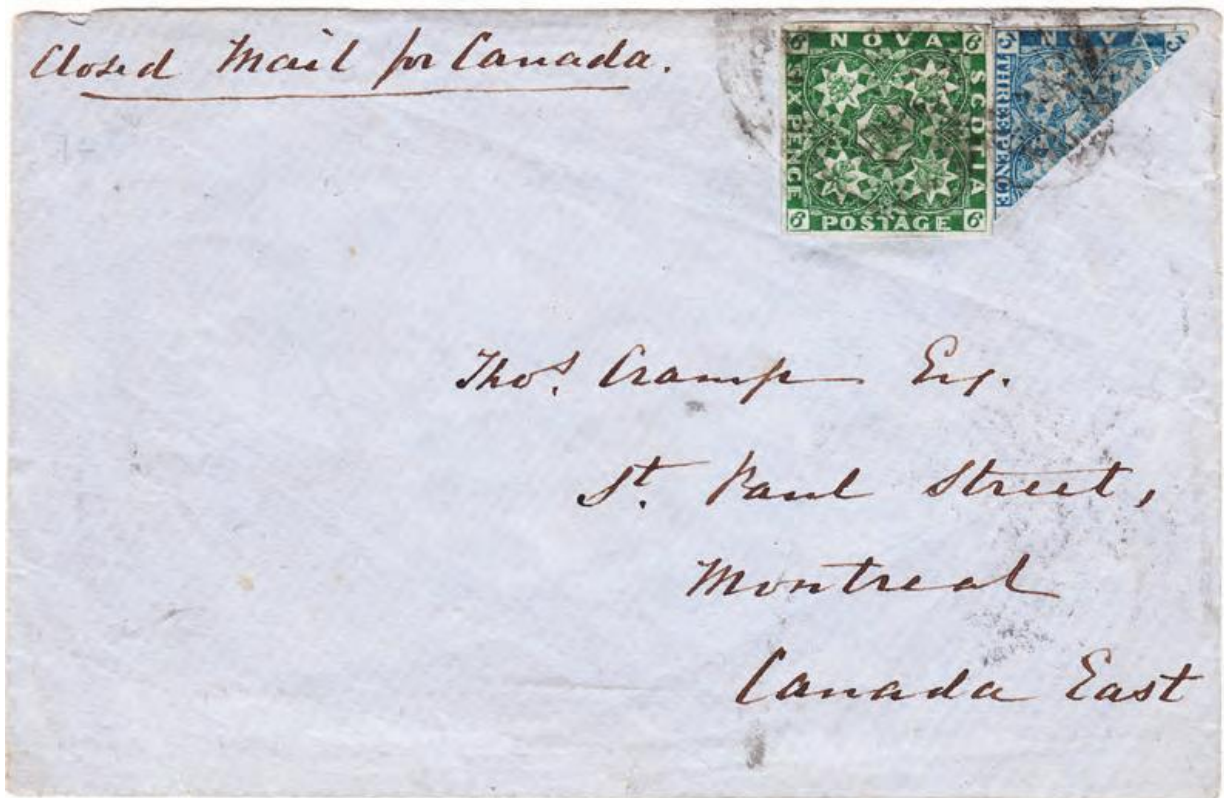 Closed Mail for Canada.
6 NOVA 6
SIX PENCE
SCOTIA
6 POSTAGE 6
3 NOVA 3
THREE PENCE
Thos. Cramp Esq.
St. Paul Street,
Montreal
Canada East